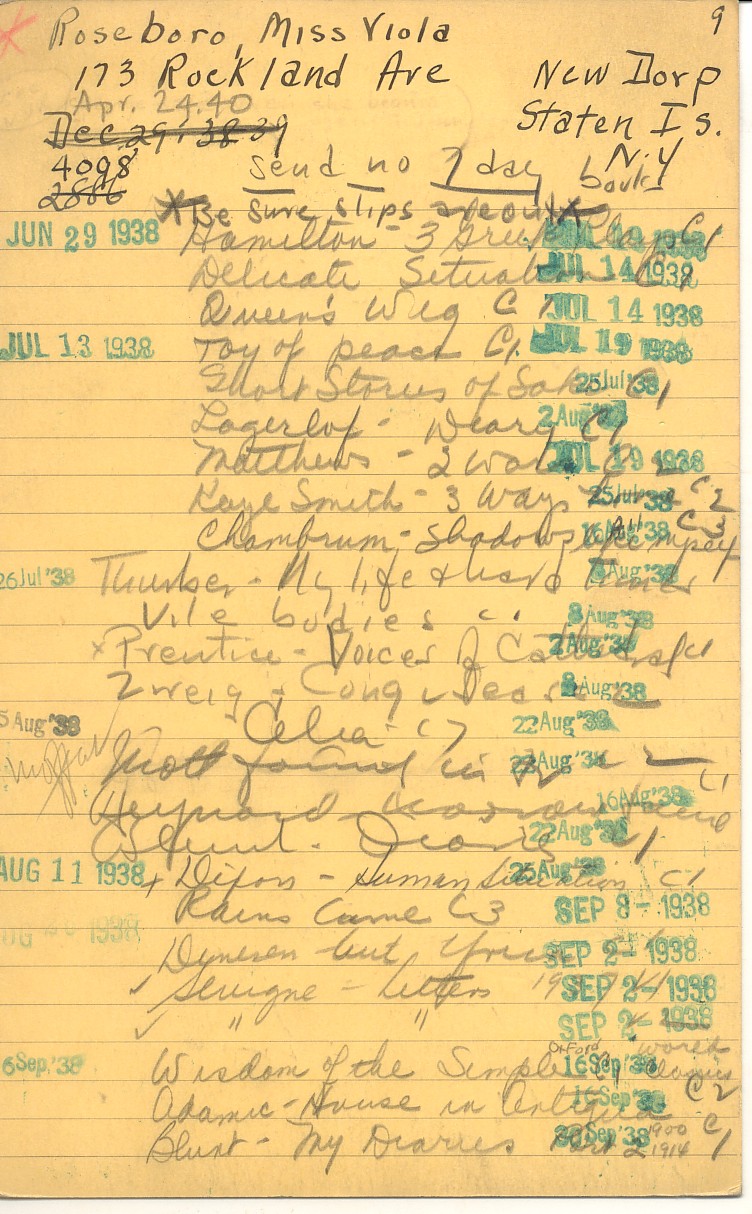 9
Roseboro, Miss Viola
173 Rockland Ave New Dorp
Apr. 24.40 Staten Is.
Dec 29, 38 39 N.Y
4098 Send no 7 day books
2886
Be sure slips
JUN 29 1938 Hamilton - 3 Greek Plays C1 JUL 19 1938
Delicate Situation C1 JUL 14 1938
Queen's Wig C1 JUL 14 1938
JUL 13 1938 Toy of peace C1 JUL 19 1938
Short Stories of Saki C1 25 Jul '38
Lagerlof - Diary C1 2 Aug '38
Matthews - 2 C2 JUL 19 1938
Kaye Smith - 3 Ways C2 25 Jul '38
Chambrun - Shadows C3 '38
26 Jul '38 Thurber - My life & hard times Aug '38
Vile bodies C1 8 Aug '38
x Prentice - Voices of Cathedral C1 2 Aug '38
Zweig - Conq 8 Aug '38
5 Aug '38 Celia - C7 22 Aug '38
Moffat
Mott found in 22 Aug '38
Heyward 16 Aug '38 C1
Blunt - C1 22 Aug '38
AUG 11 1938 + Dixon - Human Situation C1 25 Aug '38
Rains Came C3 SEP 8 - 1938
1938 Dinesen Out Africa SEP 2 - 1938
✓ Sevigne - Letters SEP 2 - 1938
✓ " " SEP 2 - 1938
6 Sep. '38 Wisdom of the Simple Oxford World Classics 16 Sep '38
Adamic - House in Antigua C2 16 Sep '38
Blunt - My Diaries Part 2 1900 1914 C1 Sep '38